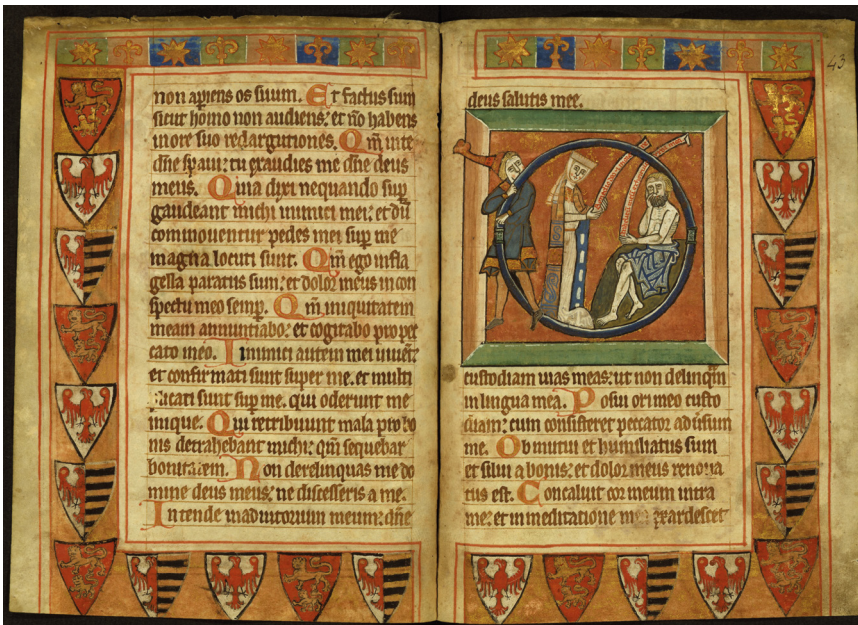 non aꝑiens os suum. Et factus sum
sicut homo non audiens: et nō habens
in ore suo redargutiones. Qm̄ in te
dn̄e spaui: tu exaudies me dn̄e deus
meus. Quia dixi nequando suꝑ
gaudeant michi inimici mei: et dū
commouentur pedes mei suꝑ me
magna locuti sunt. Qm̄ ego in fla
gella paratus sum: et dolor meus in con
spectu meo semꝑ. Qm̄ iniquitatem
meam annuntiabo: et cogitabo pro pec
cato meo. Inimici autem mei uiuēt:
et confirmati sunt super me. et multi
plicati sunt suꝑ me. qui oderunt me
inique. Qui retribuunt mala pro bo
nis detrahebant michi: qm̄ sequebar
bonitatem. Non derelinquas me do
mine deus meus: ne discesseris a me.
Intende in adiutorium meum: dn̄e
43
deus salutis mee.
custodiam uias meas: ut non delinqm̄
in lingua mea. Posui ori meo custo
diam: cum consisteret peccator aduersum
me. Obmutui et humiliatus sum
et silui a bonis: et dolor meus renoua
tus est. Concaluit cor meum intra
me: et in meditatione mea exardescet